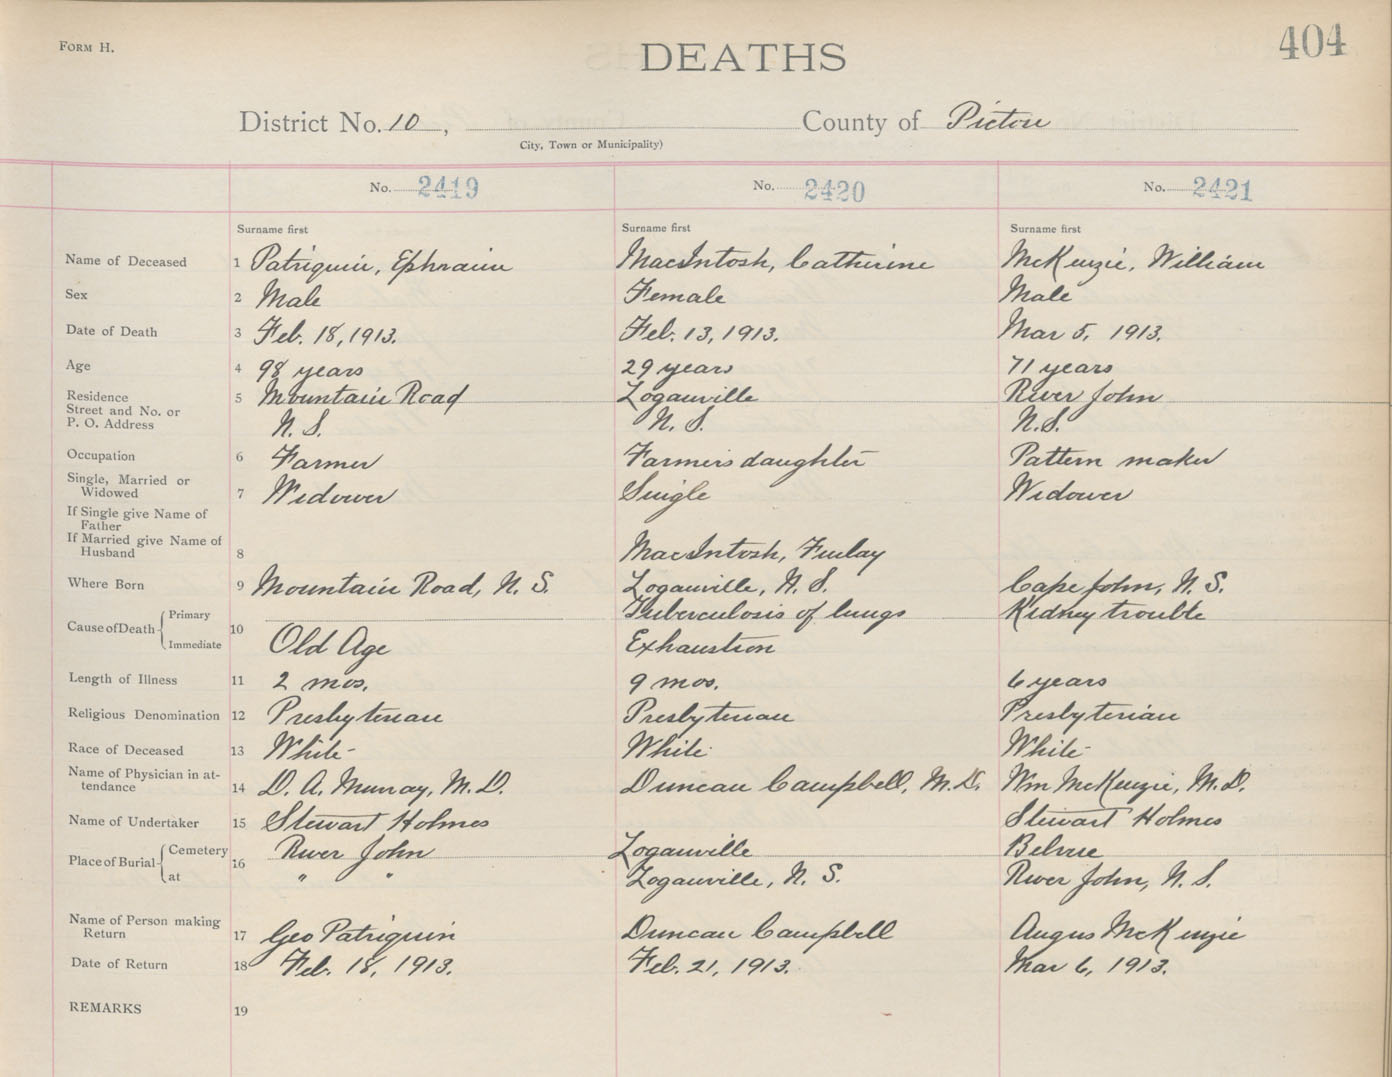 FORM H.
DEATHS
404
District No. 10, County of Pictou
City, Town or Municipality)
No. 2419 No. 2420 No. 2421
Surname first Surname first Surname first
Name of Deceased 1 Patriquin, Ephraim MacIntosh, Catherine McKenzie, William
Sex 2 Male Female Male
Date of Death 3 Feb. 18, 1913. Feb. 13, 1913. Mar 5, 1913.
Age 4 98 years 29 years 71 years
Residence 5 Mountain Road Loganville River John
Street and No. or
P. O. Address N. S. N. S. N.S.
Occupation 6 Farmer Farmers daughter Pattern maker
Single, Married or
Widowed 7 Widower Single Widower
If Single give Name of
Father
If Married give Name of
Husband 8 MacIntosh, Finlay
Where Born 9 Mountain Road, N. S. Loganville, N. S. Cape John, N. S.
Primary Tuberculosis of lungs Kidney trouble
Cause of Death 10
Immediate Old Age Exhaustion
Length of Illness 11 2 mos. 9 mos. 6 years
Religious Denomination 12 Presbyterian Presbyterian Presbyterian
Race of Deceased 13 White White White
Name of Physician in at-
tendance 14 D. A. Murray, M. D. Duncan Campbell, M.D. Wm McKenzie, M.D.
Name of Undertaker 15 Stewart Holmes Stewart Holmes
Cemetery River John Loganville
Place of Burial 16
at " " Loganville, N. S. River John, N. S.
Name of Person making
Return 17 Geo Patriquin Duncan Campbell Angus McKenzie
Date of Return 18 Feb. 18, 1913. Feb. 21, 1913. Mar 6, 1913.
REMARKS 19